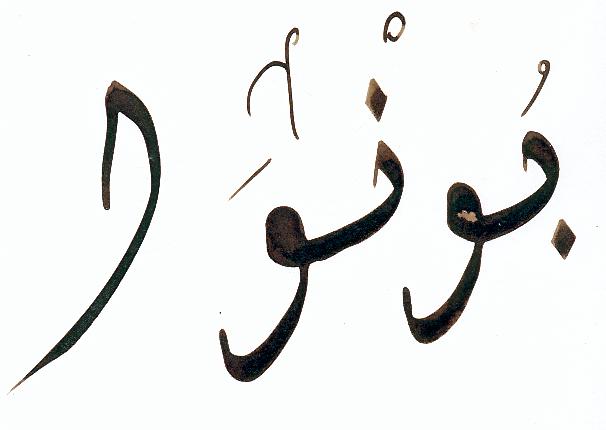 بُونْوَا